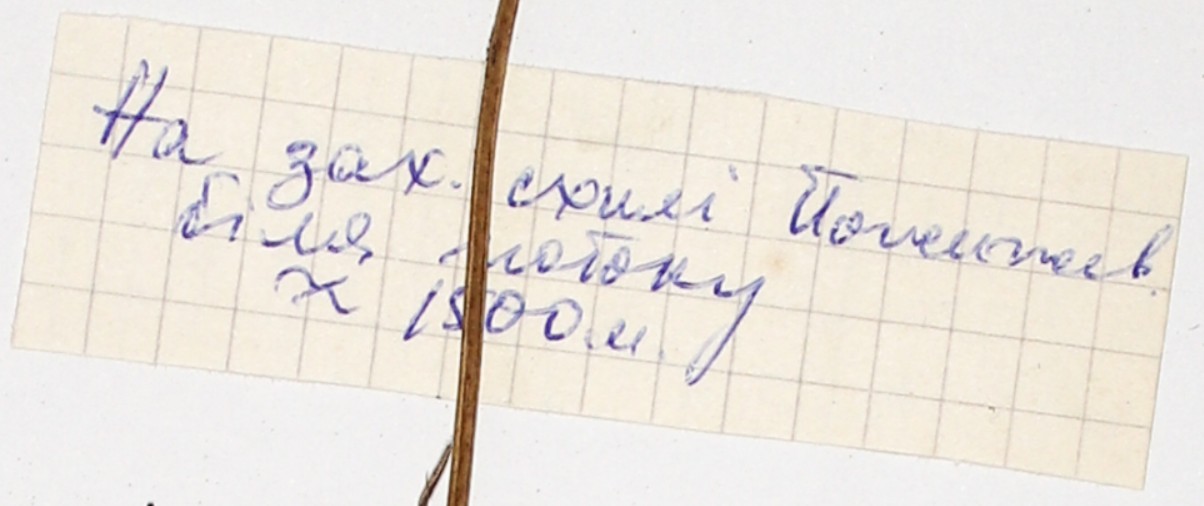 На зах. схилі
біля потоку
≈ 1500 м.